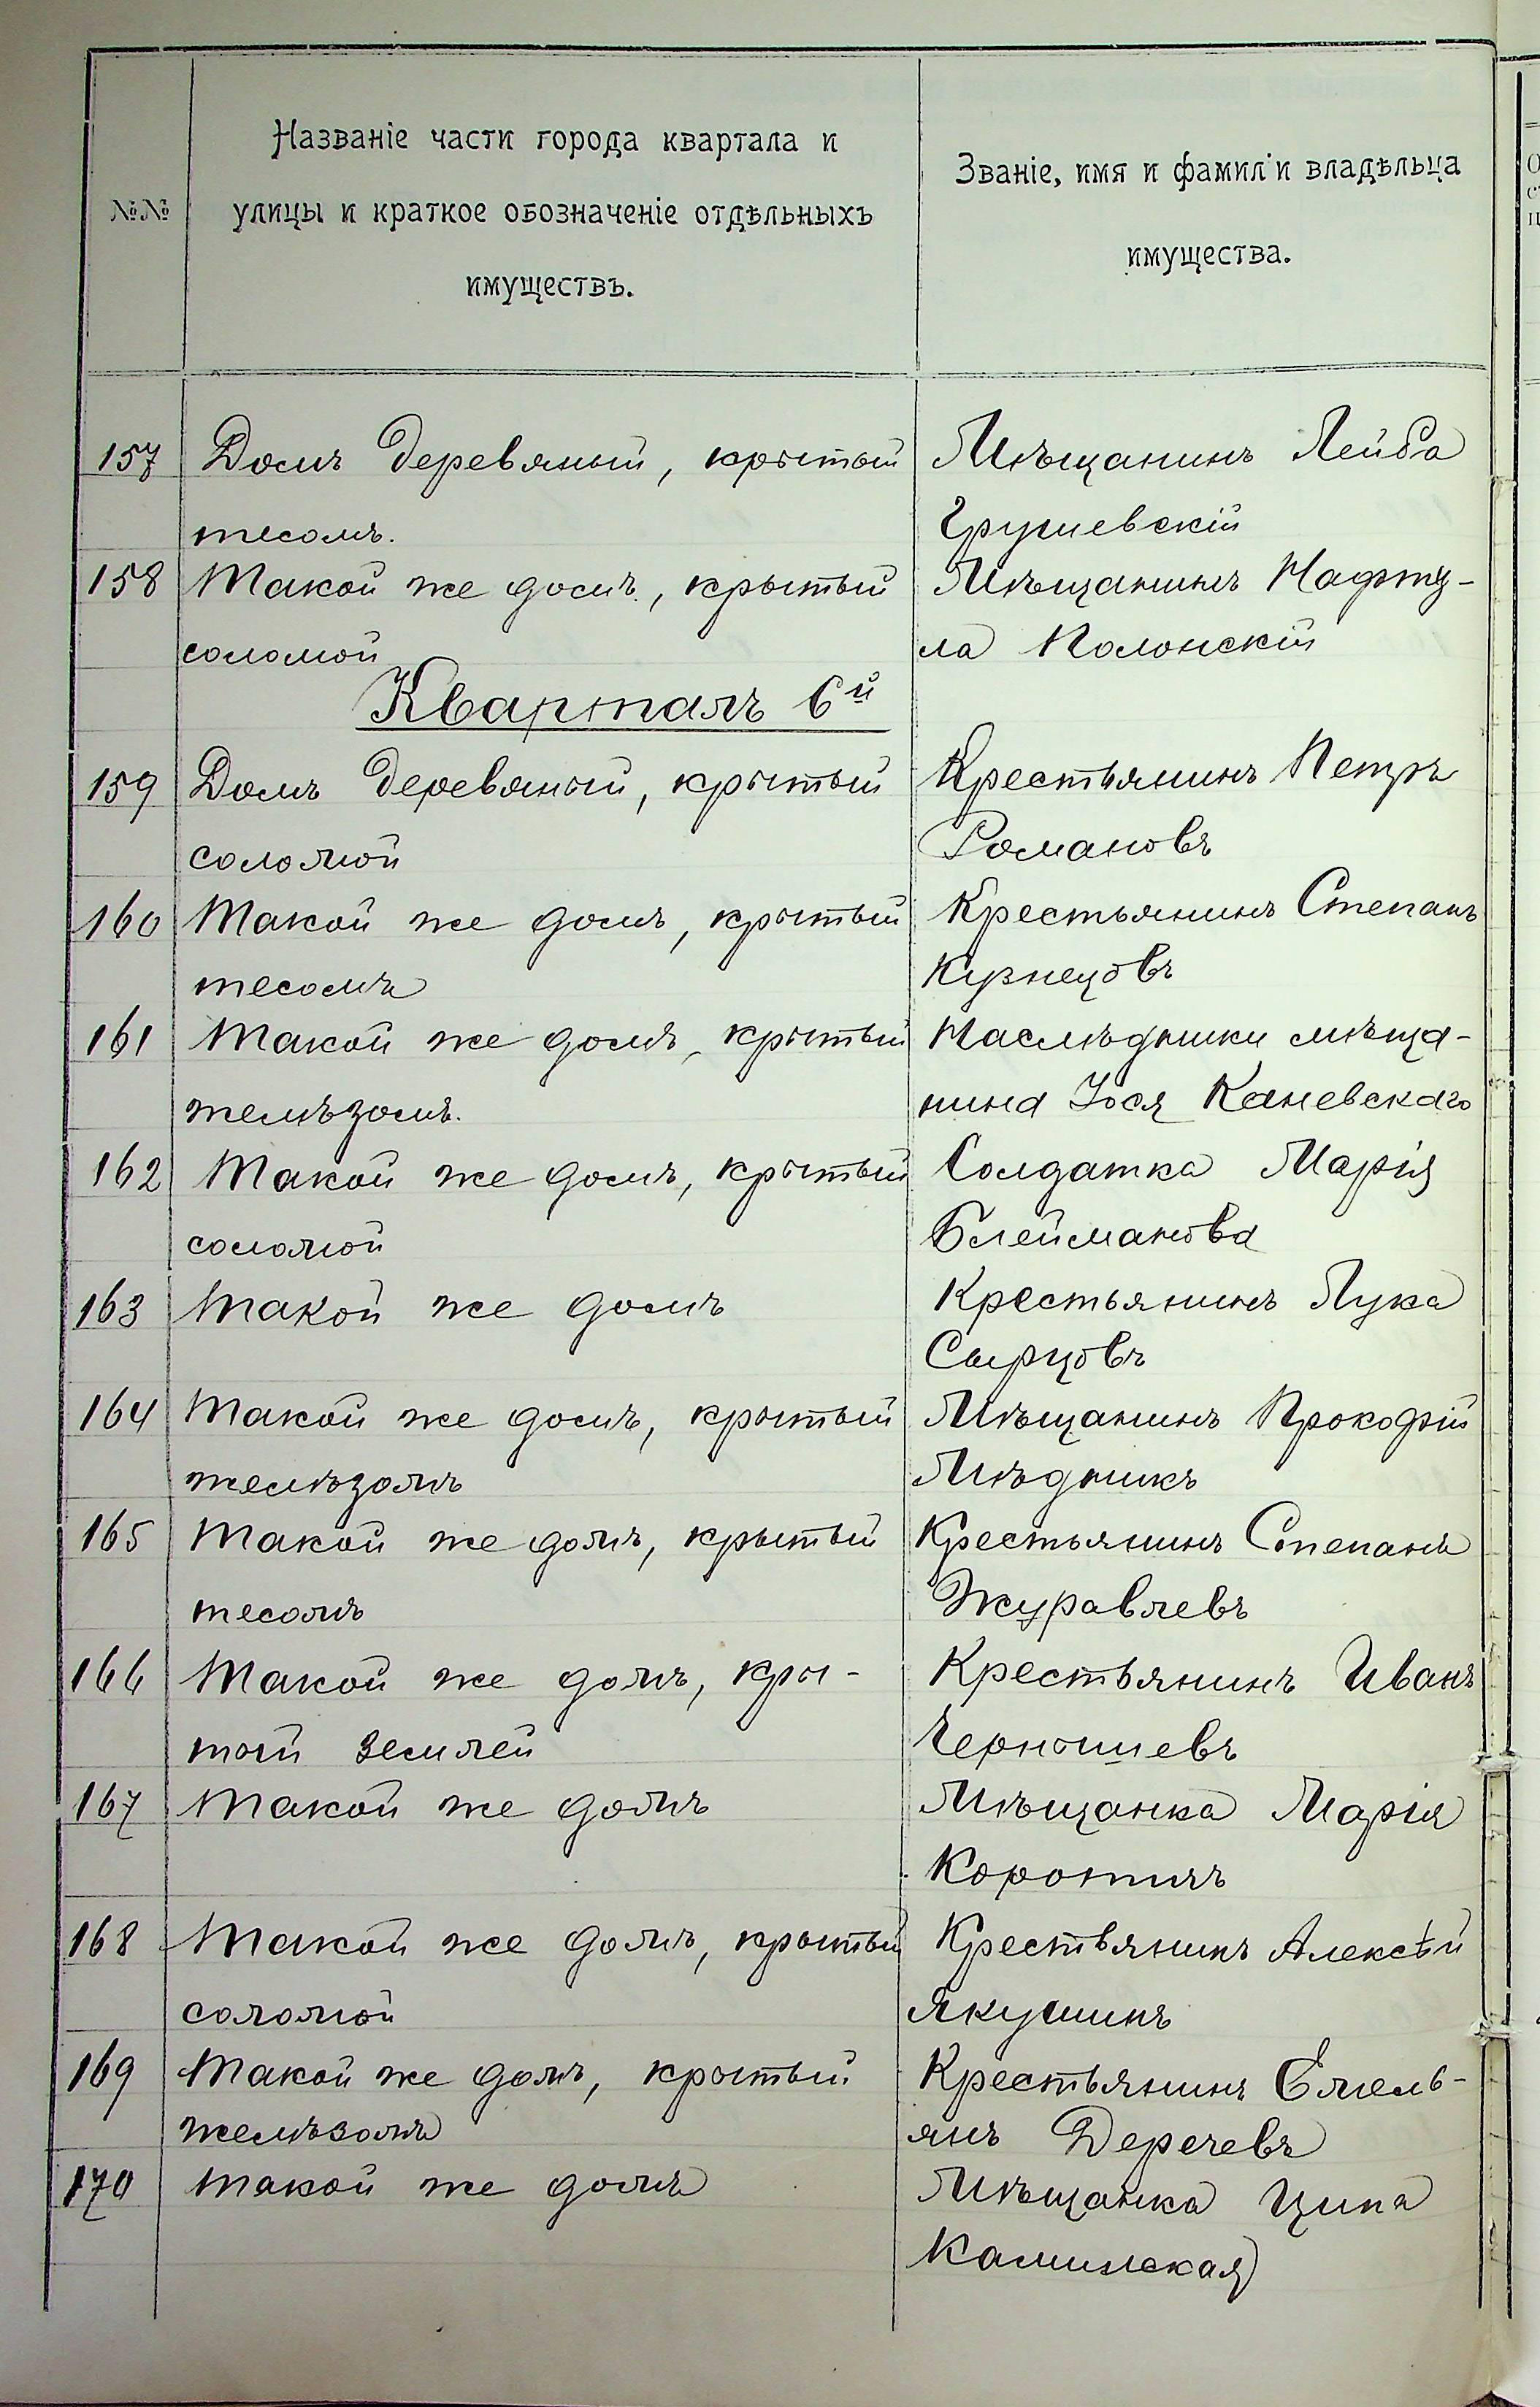 №№
Названіе части города квартала и
улицы и краткое обозначеніе отдѣльныхъ
имуществъ.
Званіе, имя и фамиліи владѣльца
имущества.
157 Домъ деревяный, крытый Мѣщанинъ Лейба
тесомъ. Грушевскій
158 Такой же домъ, крытый Мѣщанинъ Нафту-
соломой ла Полонскій
Кварталъ 6й
159 Домъ деревяный, крытый Крестьянинъ Петръ
соломой Романовъ
160 Такой же домъ, крытый Крестьянинъ Степанъ
тесомъ Кузнецовъ
161 Такой же домъ, крытый Наслѣдники мѣща-
желѣзомъ. нина Іося Каневскаго
162 Такой же домъ, крытый Солдатка Марія
соломой Блейманова
163 Такой же домъ Крестьянинъ Лука
Сырцовъ
164 Такой же домъ, крытый Мѣщанинъ Прокофій
желѣзомъ Мѣдникъ
165 Такой же домъ, крытый Крестьянинъ Степанъ
тесомъ Журавлевъ
166 Такой же домъ, кры- Крестьянинъ Иванъ
тый землей Чернышевъ
167 Такой же домъ Мѣщанка Марія
168 Такой же домъ, крытый Крестьянинъ Алексѣй
соломой Якушинъ
169 Такой же домъ, крытый Крестьянинъ Емель-
желѣзомъ янъ Деречевъ
170 Такой же домъ Мѣщанка Ципа
Каминская